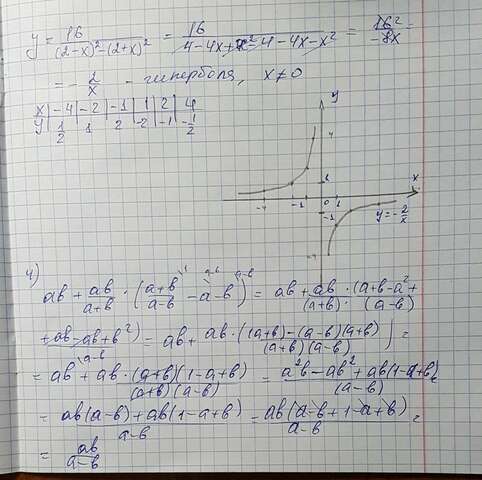 y = 16/((2-x)²-(2+x)²) = 16/(4-4x+x²-4-4x-x²) = 16²/(-8x) =
= -2/x - гипербола, x≠0
x | -4 | -2 | -1 | 1 | 2 | 4
y | 1/2 | 1 | 2 | -2 | -1 | -1/2
y
4
1
x
-4 -1 0 1
-1
y=-2/x
-4
4)
ab + ab/(a+b) · ((a+b)/(a-b) - a - b) = ab + ab/(a+b) · (a+b-a²+
+ab-ab+b²)/(a-b) = ab + ab·((a+b)-(a-b)(a+b))/((a+b)(a-b)) =
= ab + ab·(a+b)(1-a+b)/((a+b)(a-b)) = (a²b-ab²+ab(1-a+b))/(a-b) =
= (ab(a-b)+ab(1-a+b))/(a-b) = ab(a-b+1-a+b)/(a-b) =
= ab/(a-b)